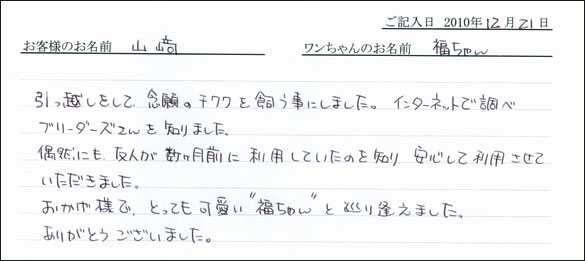 ご記入日 2010年12月21日
お客様のお名前 山﨑 ワンちゃんのお名前 福ちゃん
引っ越しをして、念願のチワワを飼う事にしました。インターネットで調べ
ブリーダーズさんを知りました。
偶然にも、友人が数ヶ月前に利用していたのを知り 安心して利用させて
いただきました。
おかげ様で、とっても可愛い"福ちゃん"と巡り逢えました。
ありがとうございました。